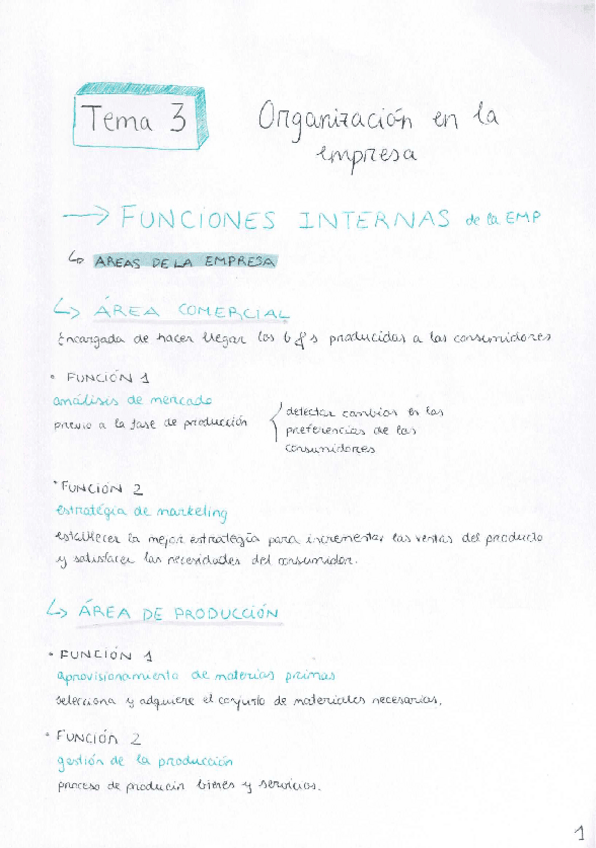 Tema 3
Organización en la
empresa
→ FUNCIONES INTERNAS de la EMP
↳ AREAS DE LA EMPRESA
↳ ÁREA COMERCIAL
Encargada de hacer llegar los b y s producidos a los consumidores
• FUNCIÓN 1
análisis de mercado
previo a la fase de producción
detectar cambios en las
preferencias de los
consumidores
• FUNCIÓN 2
estratégia de marketing
establecer la mejor estrategia para incrementar las ventas del producto
y satisfacer las necesidades del consumidor.
↳ ÁREA DE PRODUCCIÓN
• FUNCIÓN 1
aprovisionamiento de materias primas
selecciona y adquiere el conjunto de materiales necesarios.
• FUNCIÓN 2
gestión de la producción
proceso de producir bienes y servicios.
1